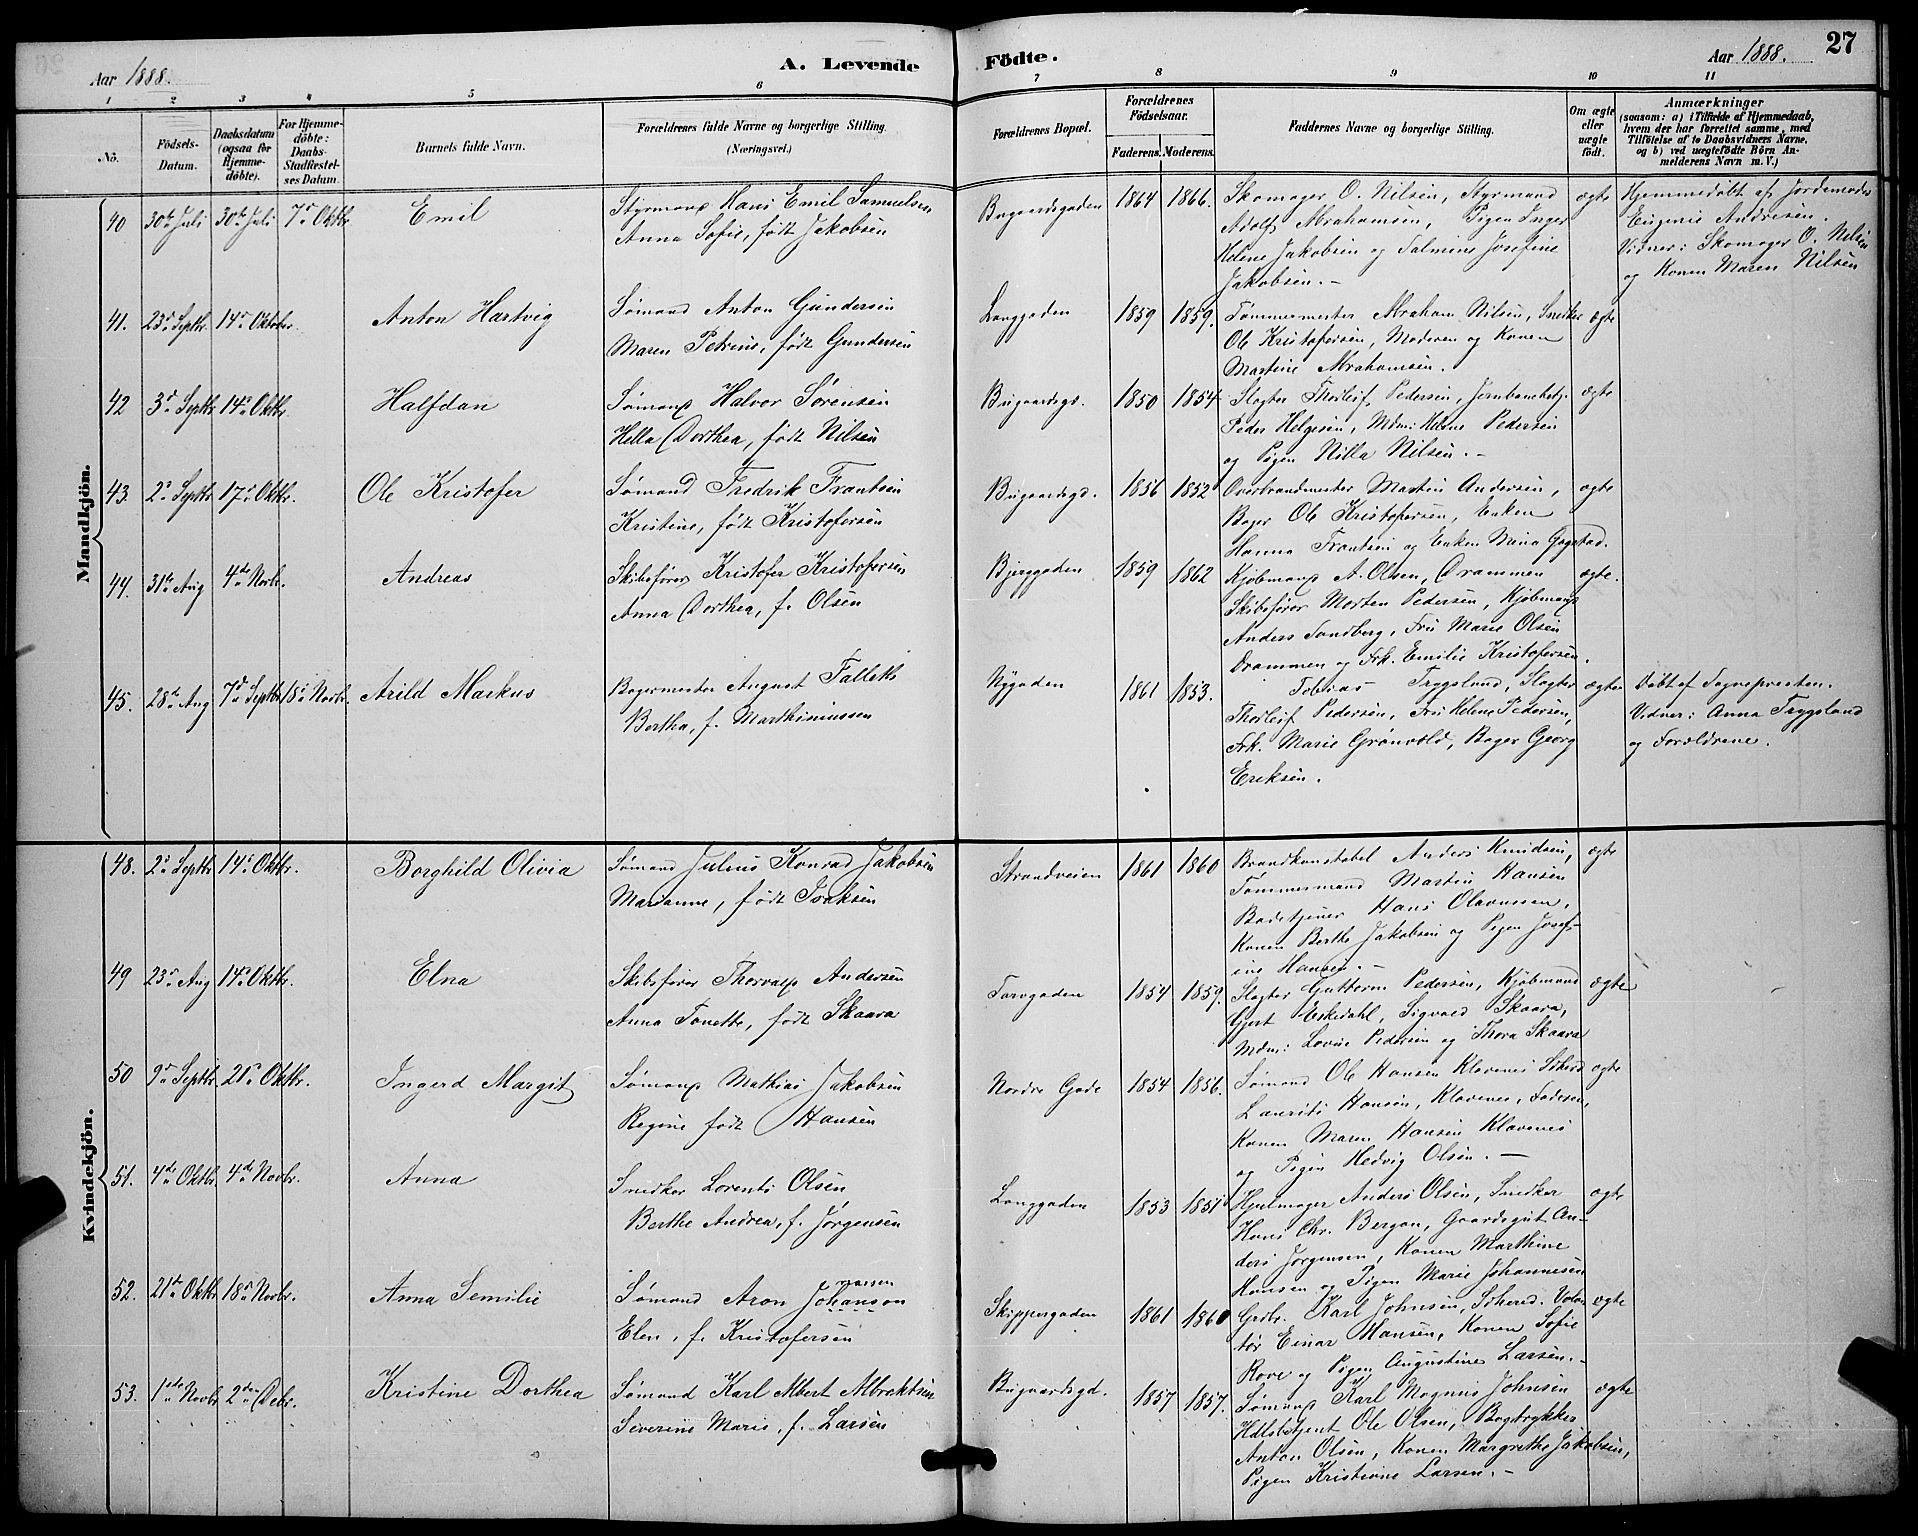 Aar 1888.
A. Levende
Födte.
Aar 1888.
27
1 2 3 4 5 6 7 8 9 10 11
No.
Födsels-Datum.
Daabsdatum (ogsaa for Hjemmedöbte).
For Hjemmedöbte: Daabs-Stadfæstelses Datum.
Barnets fulde Navn.
Forældrenes fulde Navne og borgerlige Stilling.
(Næringsvei.)
Forældrenes Bopæl.
Forældrenes Födselsaar.
Faderens. Moderens.
Faddernes Navne og borgerlige Stilling.
Om ægte eller uægte født.
Anmærkninger
(saasom: a) i Tilfælde af Hjemmedaab, hvem der har forrettet samme, med Tilföielse af to Daabsvidners Navne, og b) ved uægtefödte Börn Anmelderens Navn m. V.)
Mandkjön.
40 30te Juli 30te Juli 7de Oktbr. Emil
Styrmand Hans Emil Samuelsen
Anna Sofie, født Jakobsen
Bugaardsgaden 1864 1866.
Skomager O. Nilsen, Styrmand
Adolf Abrahamsen, Pigen Inger
Helene Jakobsen og Talmine Josefine
Jakobsen. –
ægte
Hjemmedøbt af Jordemoder
Eugenie Andresen.
Vidner: Skomager O. Nilsen
og Konen Maren Nilsen
41. 23de Septbr. 14de Oktober. Anton Hartvig
Sømand Anton Gundersen
Maren Petrine, født Gundersen
Langgaden 1859 1859.
Tømmermester Abraham Nilsen, Snedker
Ole Kristofersen, Moderen og Konen
Martine Abrahamsen.
ægte
42 3de Septbr. 14de Oktbr. Halfdan
Sømand Halvor Sørensen
Hella Dorthea, født Nilsen
Bugaardsgd. 1850 1854
Slagter Thorleif Pedersen, Jernbanebetj.
Peder Helgesen, Mdm: Helene Pedersen
og Pigen Nilla Nilsen. –
ægte
43 2de Septbr 17de Oktbr. Ole Kristofer
Sømand Fredrik Frantsen
Kristine, født Kristofersen
Bugaardsgd. 1856 1852
Overbrandmester Martin Andersen,
Bager Ole Kristofersen, Enken
Hanna Frantsen og Enken Mina Gogstad.
ægte
44. 31te Aug 4de Novbr. Andreas
Skibsfører Kristofer Kristofersen
Anna Dorthea, f. Olsen
Bjerggaden 1859 1862
Kjøbmand A. Olsen, Drammen
Skibsfører Morten Pedersen, Kjøbmand
Anders Sundberg, Fru Marie Olsen
Drammen og Frk. Emilie Kristofersen.
ægte.
45. 28de Aug 7de Septbr 18de Novbr. Arild Markus
Bagermester August Falleth
Bertha, f. Marthiniussen
Nygaden 1861 1853.
Tobias Trygsland, Slagter
Thorleif Pedersen, Fru Helene Pedersen,
Frk. Marie Grønvold, Bager Georg
Eriksen.
ægte
Døbt af Sognepresten.
Vidner: Anna Trygsland
og Forældrene.
Kvindekjön.
48. 2de Septbr 14de Oktbr. Borghild Olivia
Sømand Julius Konrad Jakobsen
Marianne, født Isaksen
Strandveien 1861 1860
Brandkonstabel Anders Knudsen,
Tømmermand Martin Hansen
Badetjener Hans Olavussen,
Konen Berthe Jakobsen og Pigen Josef-
ine Hansen. –
ægte
49 23de Aug 14de Oktbr. Elna
Skibsfører Thorvald Andersen
Anna Tonette, født Skaara
Torvgaden 1854 1859.
Slagter Guttorm Pedersen, Kjøbmand
Gjert Eskedahl, Sigvald Skaara,
Mdm: Lovise Pedersen og Thora Skaara
ægte
50 9de Septbr. 21de Oktbr. Ingerd Margit
Sømand Mathias Jakobsen
Regine født Hansen
Nordre Gade 1854 1856.
Sømand Ole Hansen Klavenes Sbherd
Laurits Hansen, Klavenes, Faderen,
Konen Maren Hansen Klavenes
og Pigen Hedvig Olsen. –
ægte
51. 4de Oktbr. 4de Novbr. Anna
Snedker Lorents Olsen
Berthe Andrea, f. Jørgensen
Langgaden 1853 1851
Hjulmager Anders Olsen, Snedker
Hans Chr. Bergan, Gaardsgut An-
ders Jørgensen, Konen Marthine
Hansen og Pigen Marie Johannesen
ægte
52. 21de Oktbr 18de Novbr. Anna Semilie
Sømand Aron Johanson
Elen, f. Kristofersen
Skippergaden 1861 1860
Grdbr. Karl Johnsen, Sbhered. Volon-
tør Einar Hansen, Konen Sofie
Rove og Pigen Augustine Larsen. –
ægte
53. 1ste Novbr 2den Debr. Kristine Dorthea
Sømand Karl Albert Albrektsen
Severine Marie, f. Larsen
Bugaardsgd. 1857 1857.
Sømand Karl Magnus Johnsen
Hdlsbetjent Ole Olsen, Bogtrykker
Anton Olsen, Konen Margrethe Jakobsen,
Pigen Kristiane Larsen. –
ægte